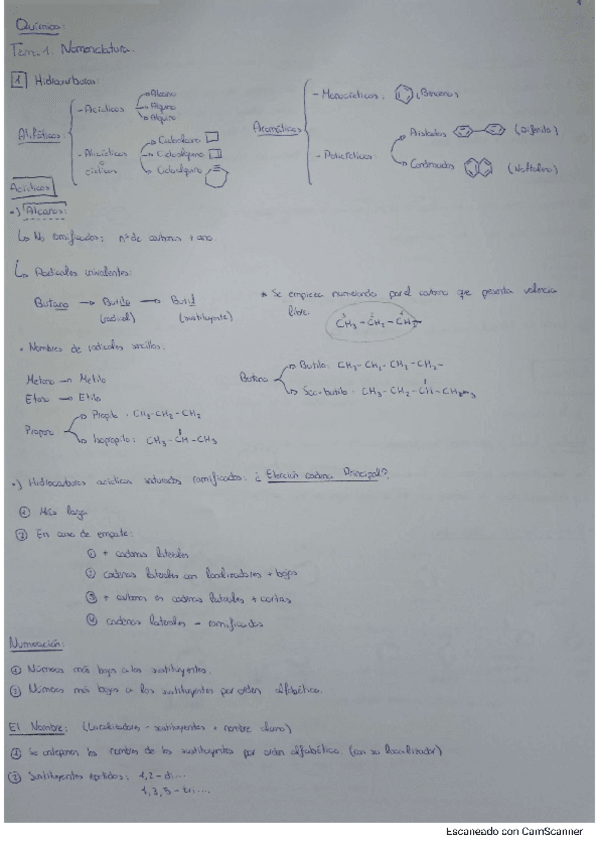 Química:
Tema 1. Nomenclatura.
1 Hidrocarburos:
Alifáticos:
- Acíclicos
Alcano
Alqueno
Alquino
- Alicíclicos
o
cíclicos
Cicloalcano
Cicloalqueno
Cicloalquino
Aromáticos
- Monocíclicos: (Benceno)
- Policíclicos
Aislados (Difenilo)
Condensados (Naftaleno)
Acíclicos
•) Alcanos:
↳ No ramificados: nº de carbonos + ano
↳ Radicales univalentes:
Butano → Butilo → Butil
(radical) (sustituyente)
* Se empieza numerando por el carbono que presenta valencia
libre.
CH3 - CH2 - CH2-
• Nombres de radicales sencillos:
Metano → Metilo
Etano → Etilo
Propano
Propilo: CH3-CH2-CH2
Isopropilo: CH3-CH-CH3
Butano
Butilo: CH3-CH2-CH2-CH2-
Sec-butilo: CH3-CH2-CH-CH3
•) Hidrocarburos acíclicos saturados ramificados: ¿Elección cadena Principal?
① Más larga
② En caso de empate:
① + cadenas laterales
② cadenas laterales con localizadores + bajos
③ + carbonos en cadenas laterales + cortas
④ cadenas laterales - ramificadas
Numeración:
① Números más bajos a los sustituyentes.
② Números más bajos a los sustituyentes por orden alfabético.
El Nombre: (Localizadores - sustituyentes + nombre alcano)
① Se anteponen los nombres de los sustituyentes por orden alfabético (con su localizador)
② Sustituyentes repetidos: 1,2-di...
1,3,5-tri...
Escaneado con CamScanner